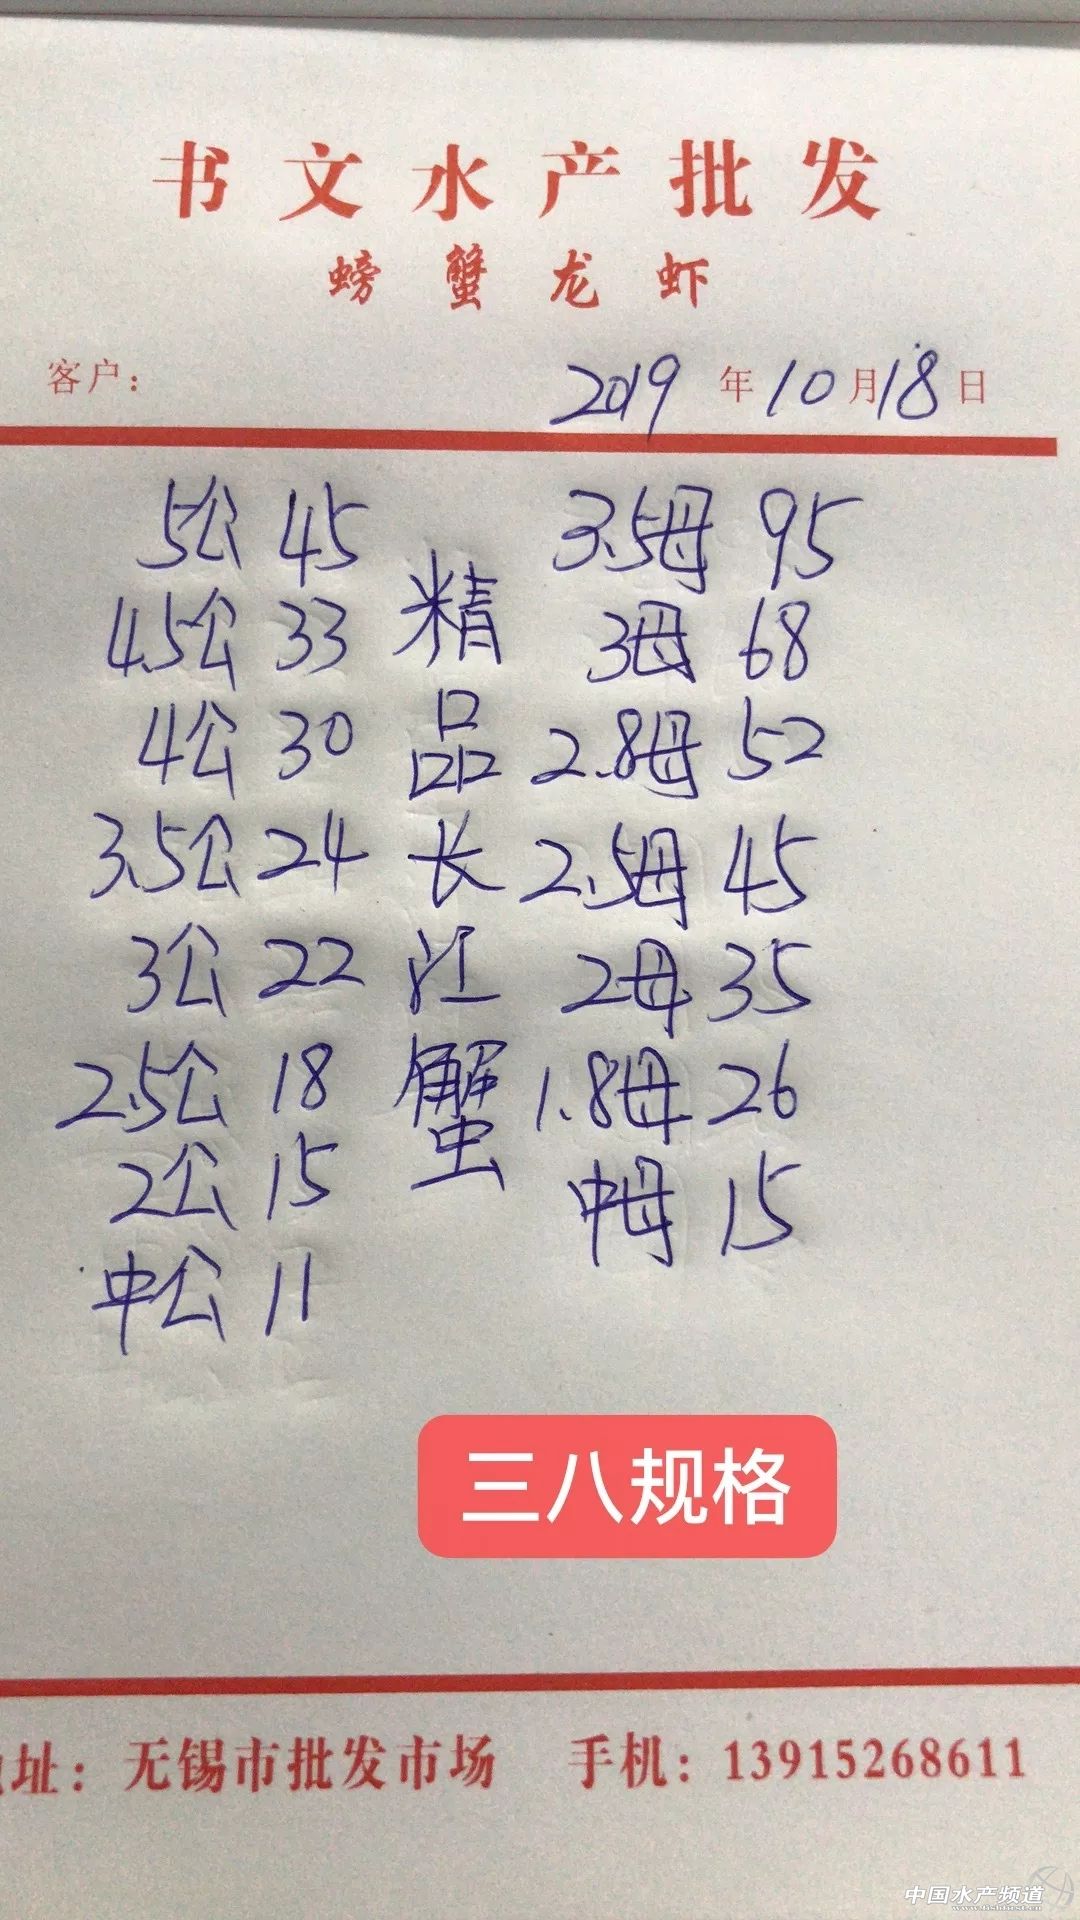 书文水产批发
螃蟹龙虾
客户： 2019年10月18日
5公 45
4.5公 33
4公 30
3.5公 24
3公 22
2.5公 18
2公 15
中公 11
精品长江蟹
3.5母 95
3母 68
2.8母 52
2.5母 45
2母 35
1.8母 26
中母 15
三八规格
址：无锡市批发市场 手机：13915268611
中国水产频道
www.fishfirst.cn